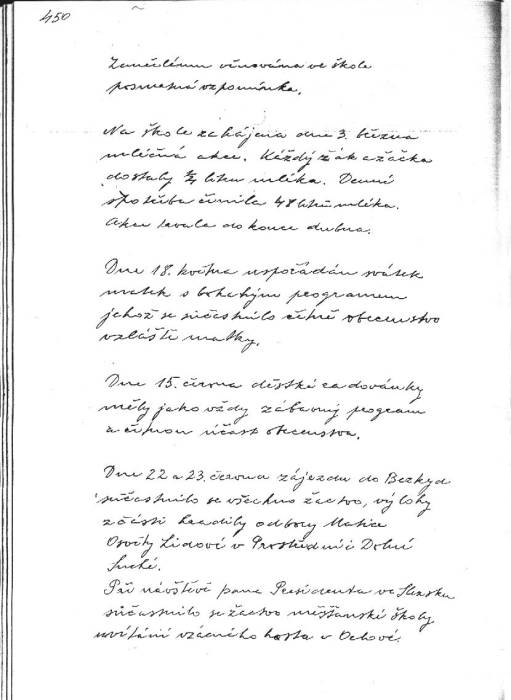 450
Zemřelému věnována ve škole
posmrtná vzpomínka.
Na škole zahájena dne 3. března
mléčná akce. Každý žák a žačka
dostaly ¼ litru mléka. Denní
spotřeba činila 48 litrů mléka.
Akce trvala do konce dubna.
Dne 18. května uspořádán svátek
matek s bohatým programem
jehož se súčastnilo četné obecenstvo
vzláště matky.
Dne 15. června dětské radovánky
měly jako vždy zábavný program
a četnou účast obecenstva.
Dne 22 a 23. června zájezdu do Bezkyd
súčastnilo se všechno žactvo, výlohy
z části hradily odbory Matice
Osvěty Lidové v Prostřední i Dolní
Suché.
Při návštěvě pana Presidenta ve Slezsku
súčastnilo se žactvo měšťanské školy
uvítání vzácného hosta v Orlové.